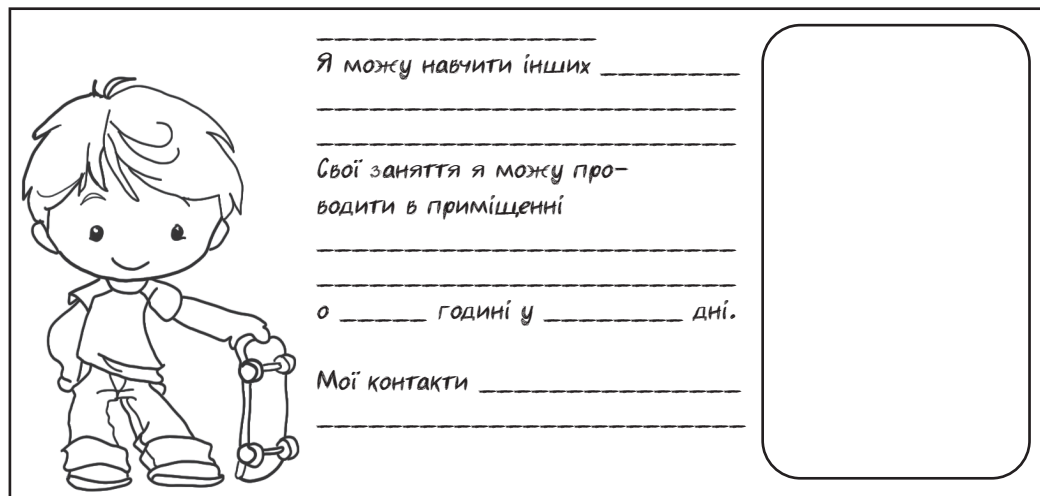 _________________
Я можу навчити інших _________
__________________________
__________________________
Свої заняття я можу про-
водити в приміщенні
__________________________
__________________________
о ______ годині у _________ дні.
Мої контакти ________________
__________________________